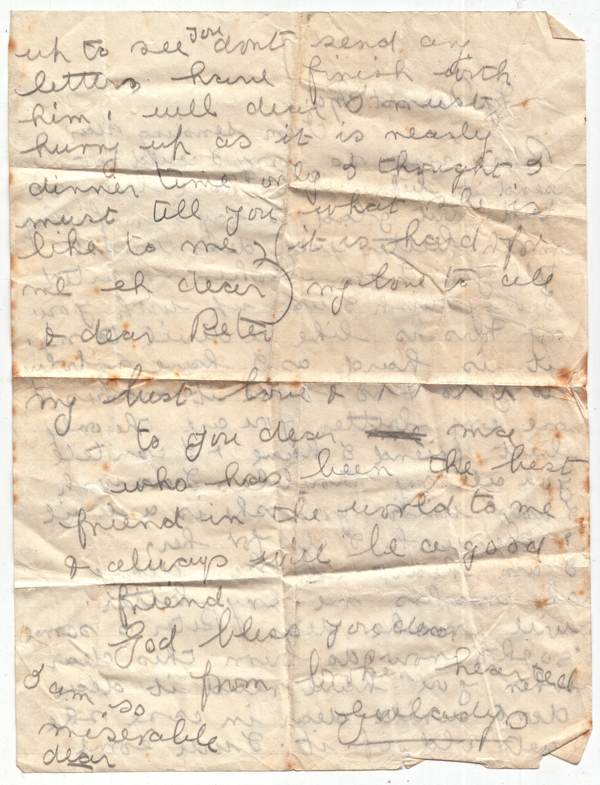 up to see you dont send any
letters have finish with
him, well dear I must
hurry up as it is nearly
dinner time only I thought I
must tell you what life is
like to me, it is hard for
me eh dear my love to all
& dear Peter
my best love & xxxx
to you dear mae
who has been the best
friend in the world to me
& always will be a good
friend
God bless you dear
from broken hearted
I am so
miserable
dear